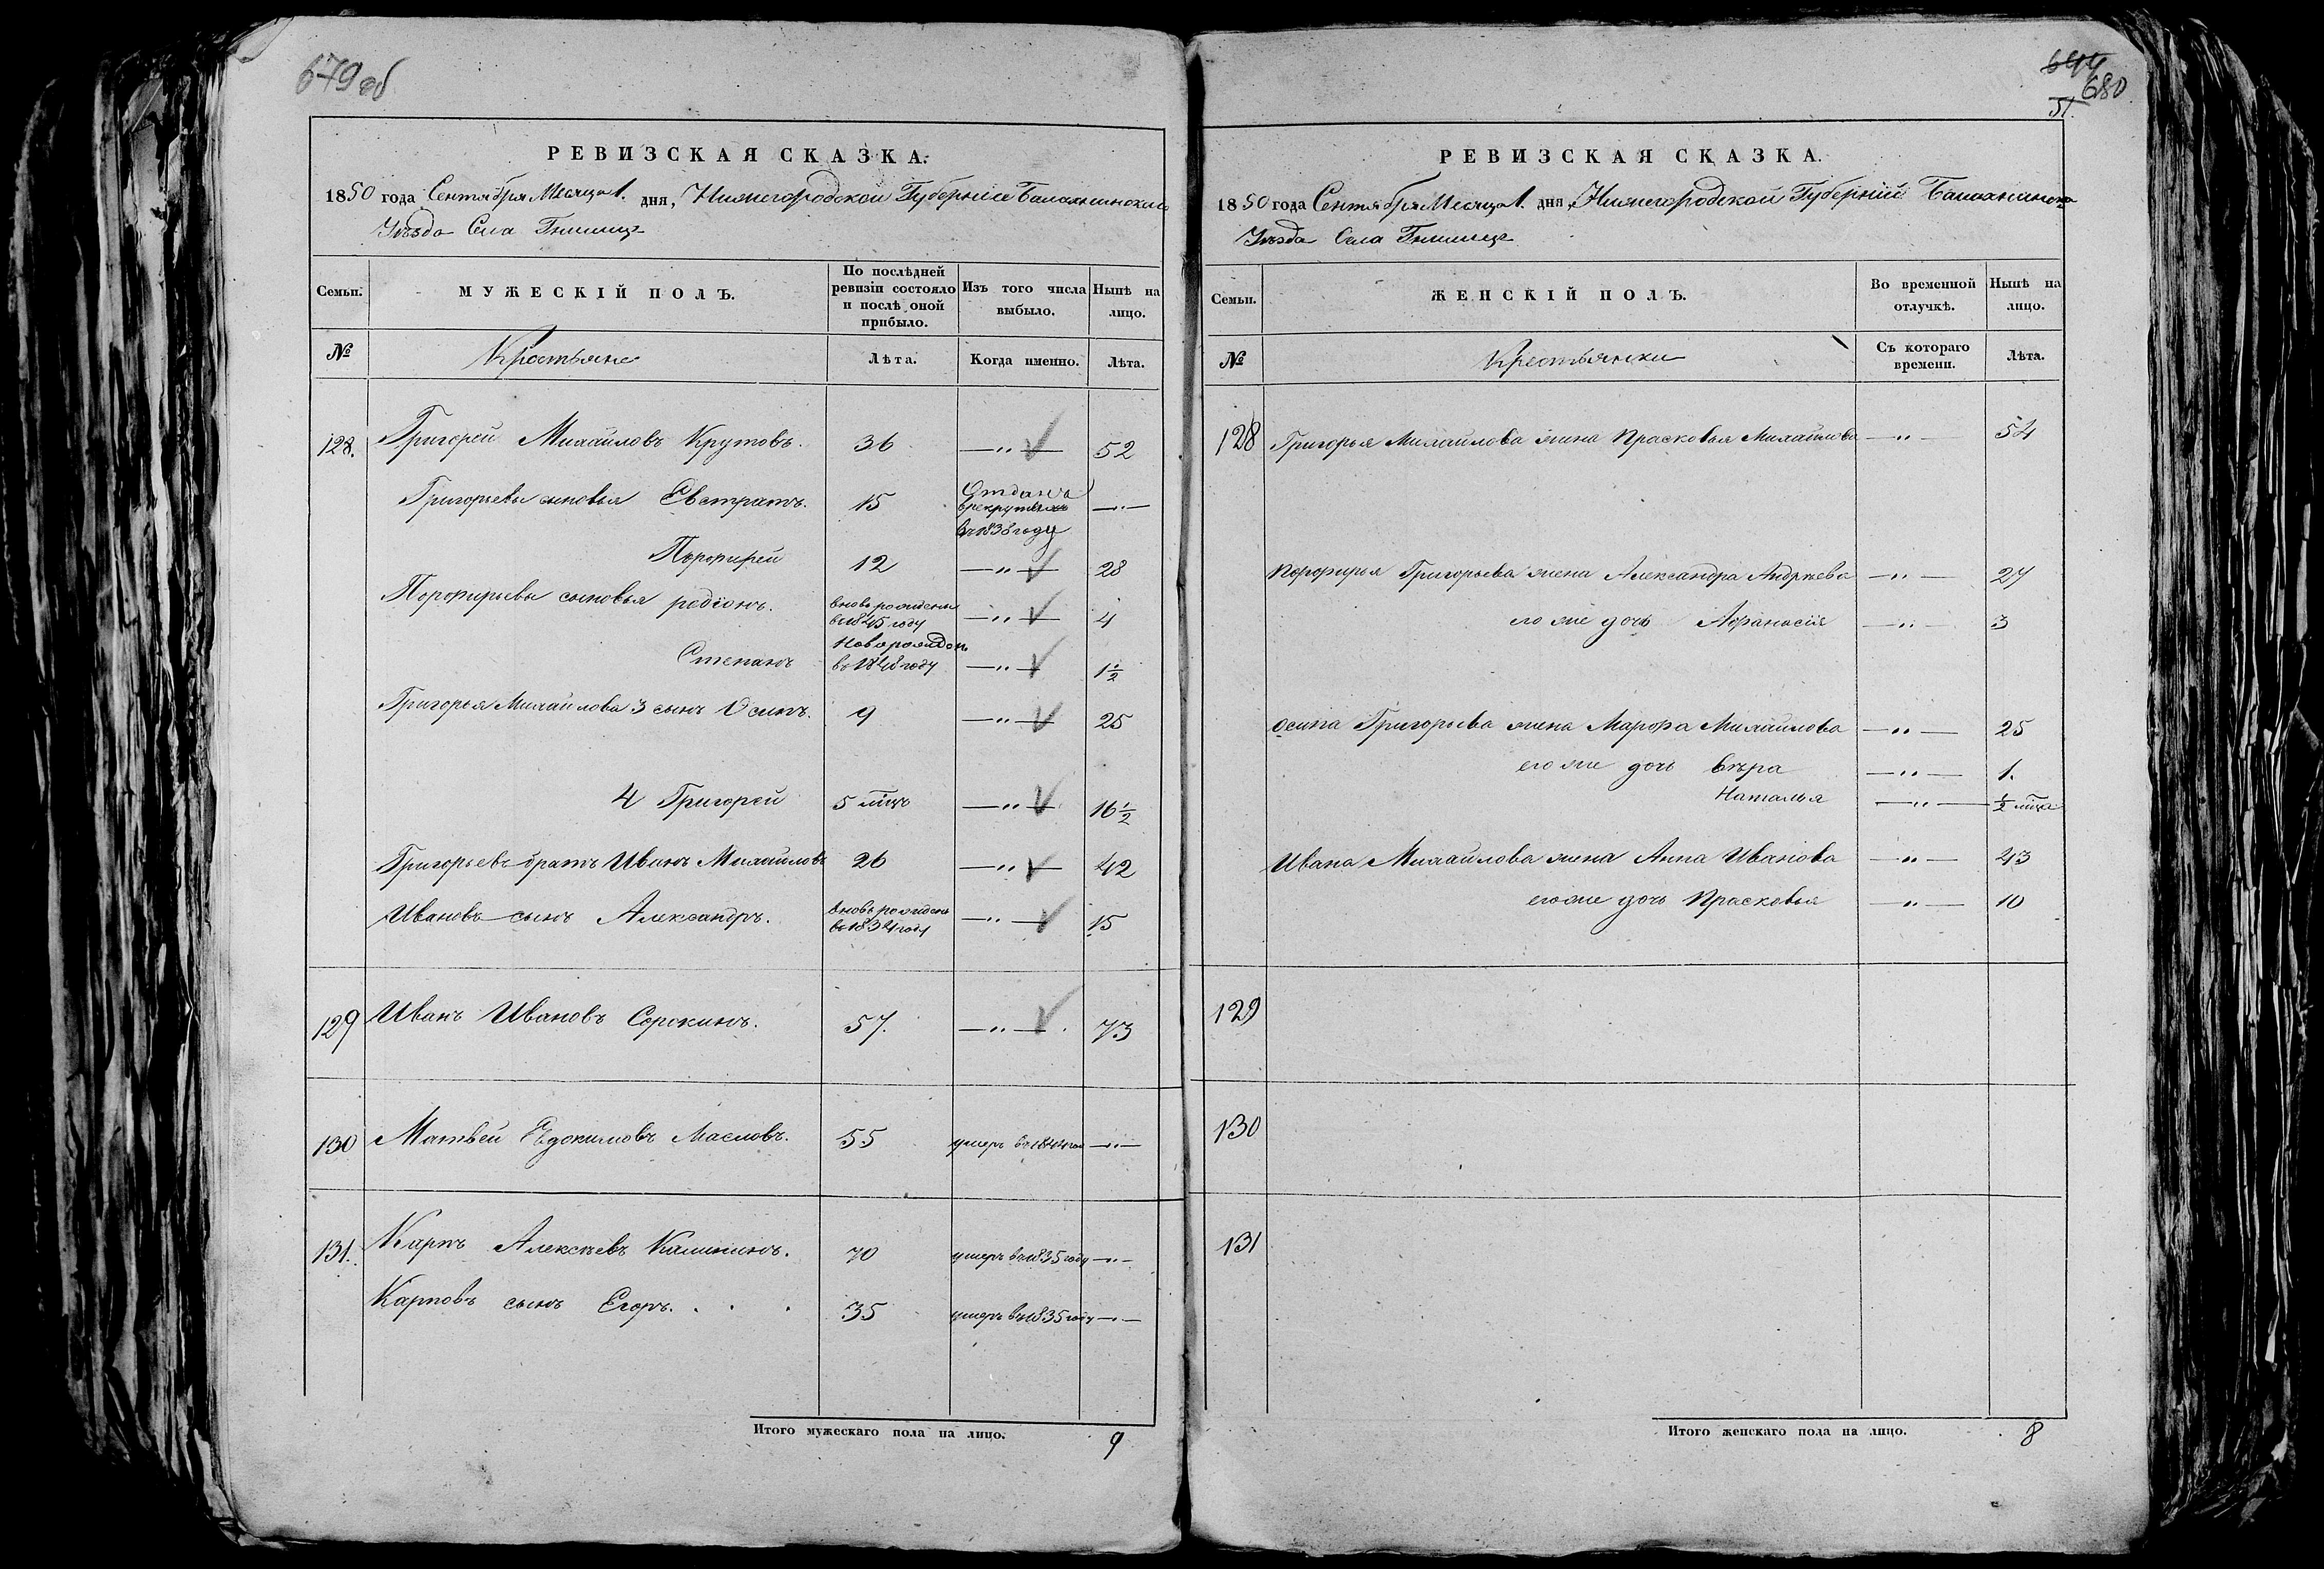 679 об
РЕВИЗСКАЯ СКАЗКА.
1850 года Сентября Месяца 1. дня, Нижегородской Губерніи Балахнинскаго
Уѣзда Села
Семьи.
МУЖЕСКІЙ ПОЛЪ.
По послѣдней ревизіи состояло и послѣ оной прибыло.
Изъ того числа выбыло.
Нынѣ на лицо.
№
Крестьяне
Лѣта.
Когда именно.
Лѣта.
128. Григорей Михайловъ Крутовъ. 36 —〃— 52
Григорьевы сыновья Евстратъ. 15 Отданъ в рекруты въ 1838 году —〃—
Порфирей 12 —〃— 28
Порфирьевы сыновья родіонъ. вновь рожденъ въ 1845 году —〃— 4
Степанъ Новорожден въ 1848 году —〃— 1½
Григорья Михайлова 3 сынъ Осипъ. 9 —〃— 25
4 Григорей 5 мцъ —〃— 16½
Григорьевъ братъ Иванъ Михайловъ 26 —〃— 42
Ивановъ сынъ Александръ. вновь рожденъ въ 1834 году —〃— 15
129 Иванъ Ивановъ Сорокинъ. 57. —〃— 73
130 Матвей Евдокимовъ Масловъ. 55 умеръ въ 1844 год —〃—
131. Карпъ Алексѣевъ Калининъ. 70 умеръ въ 1835 году —〃—
Карповъ сынъ Егоръ. 35 умеръ въ 1835 году —〃—
Итого мужескаго пола на лицо. 9
680
51.
РЕВИЗСКАЯ СКАЗКА.
1850 года Сентября Месяца 1. дня, Нижегородской Губерніи Балахнинска
Уѣзда Села
Семьи.
ЖЕНСКІЙ ПОЛЪ.
Во временной отлучкѣ.
Нынѣ на лицо.
№
Крестьянки
Съ котораго времени.
Лѣта.
128 Григорья Михайлова жена Прасковья Михайлова —〃— 54
Порфирья Григорьева жена Александра Андрѣева —〃— 27
его же дочь Афанасія —〃— 3
осипа Григорьева жена Марфа Михайлова —〃— 25
его же дочь Вѣра —〃— 1.
Наталья —〃— ½ мца
Ивана Михайлова жена Анна Иванова —〃— 43
его же дочь Прасковья —〃— 10
129
130
131
Итого женскаго пола на лицо. 8